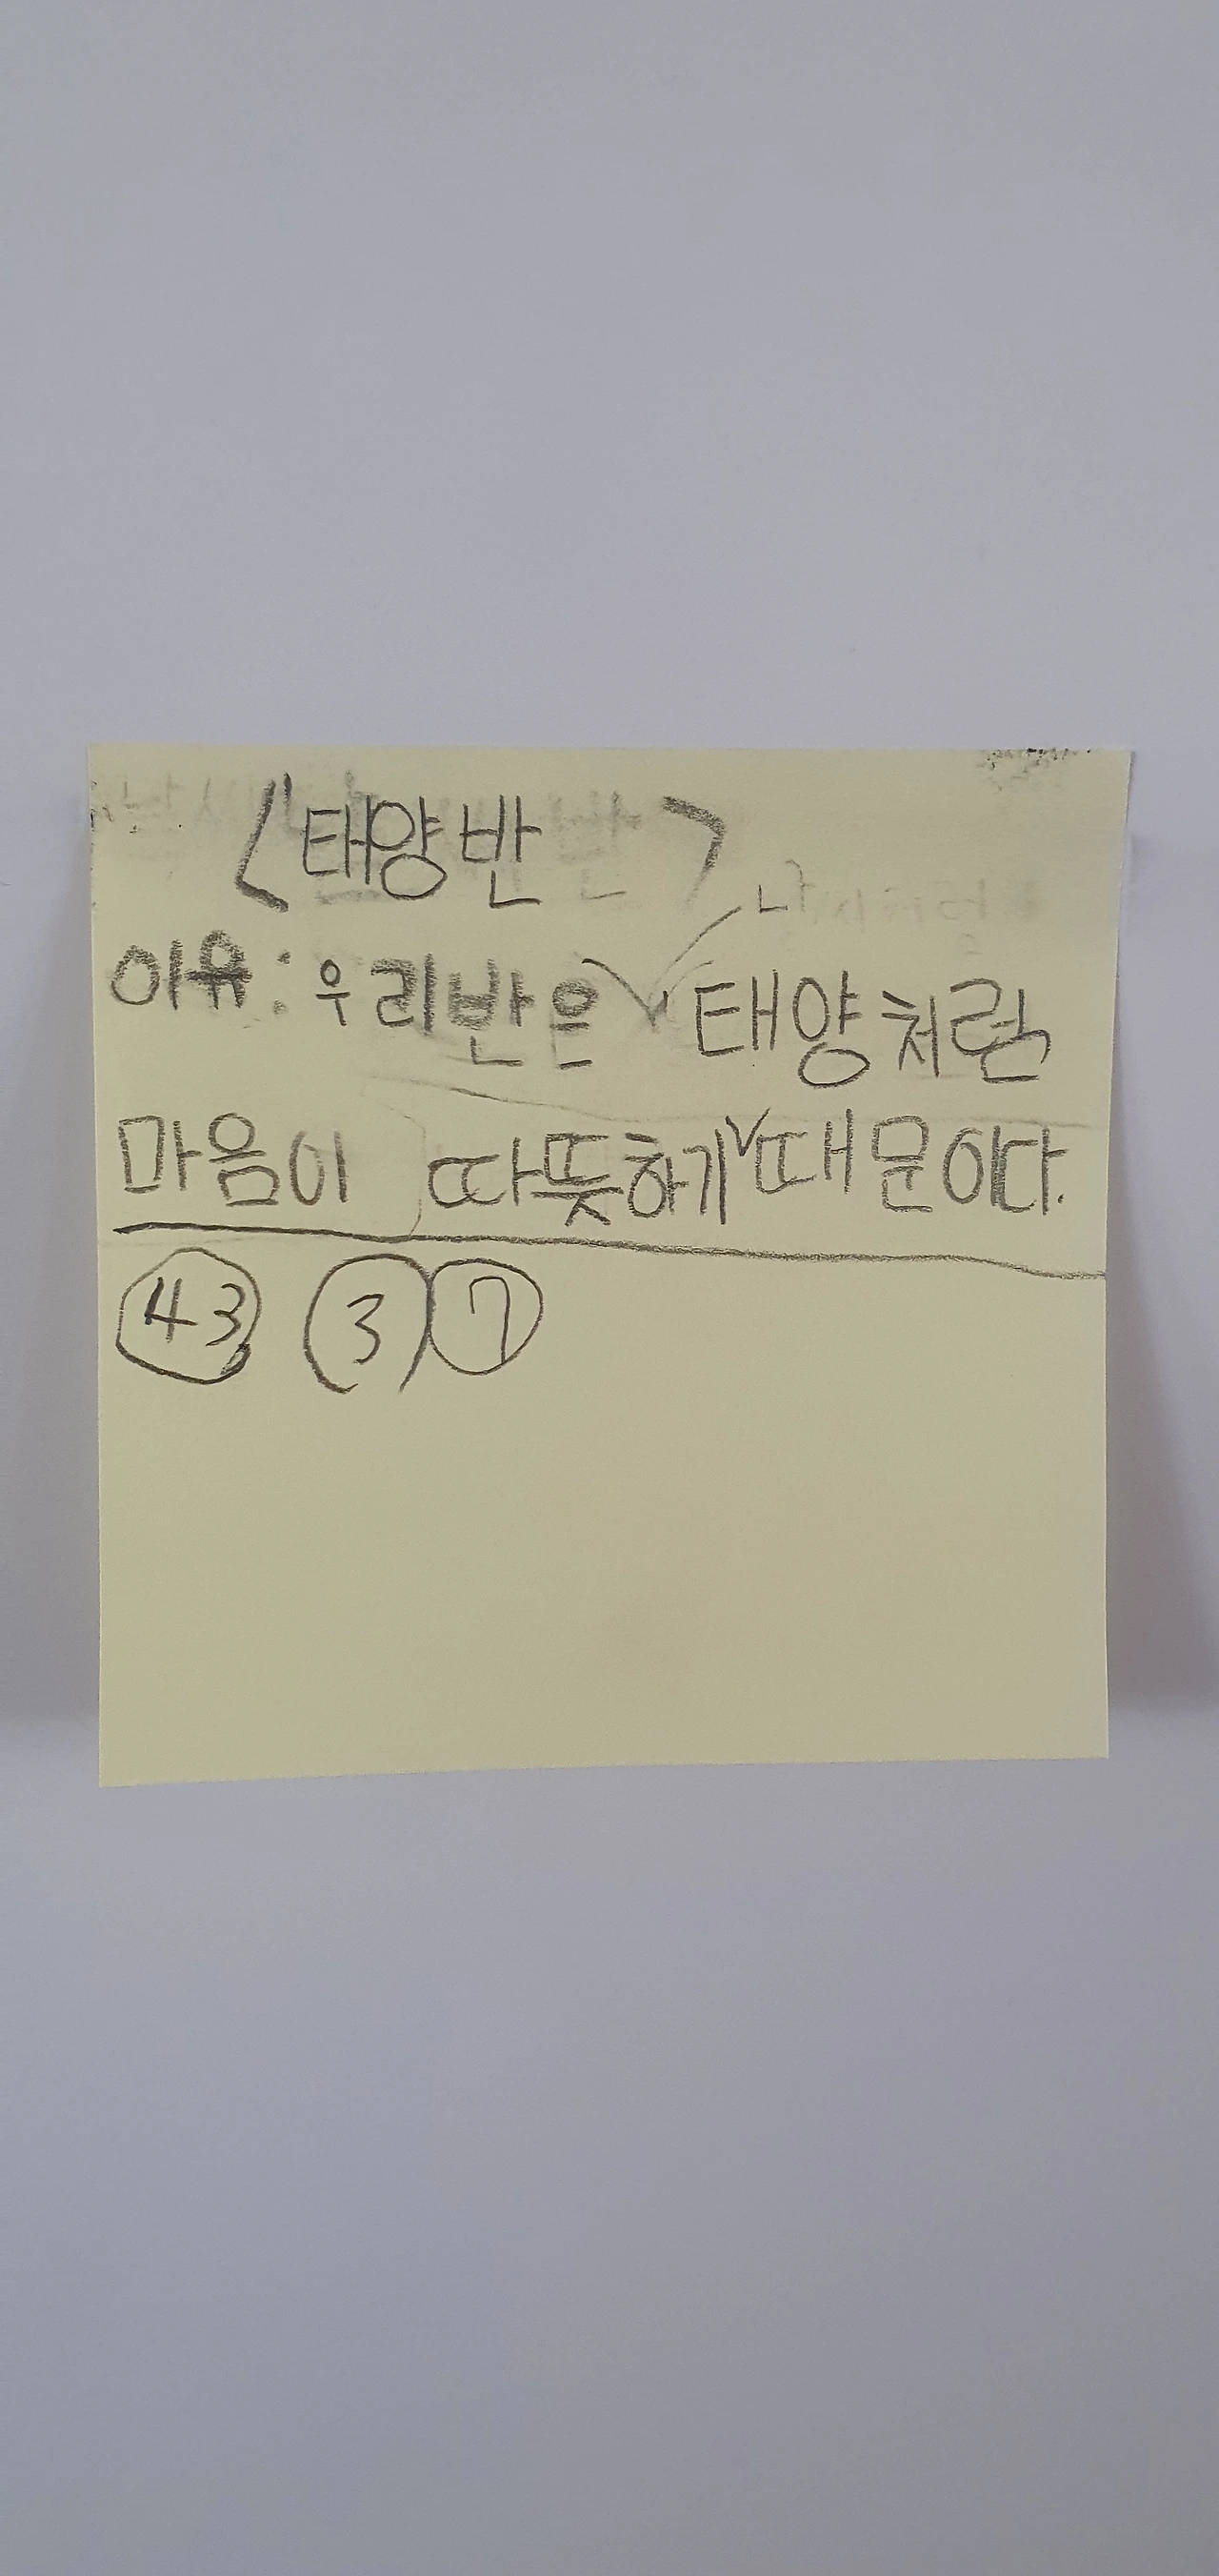 <태양반>
이유: 우리반은 태양처럼
마음이 따뜻하기 때문이다.
43 3 7